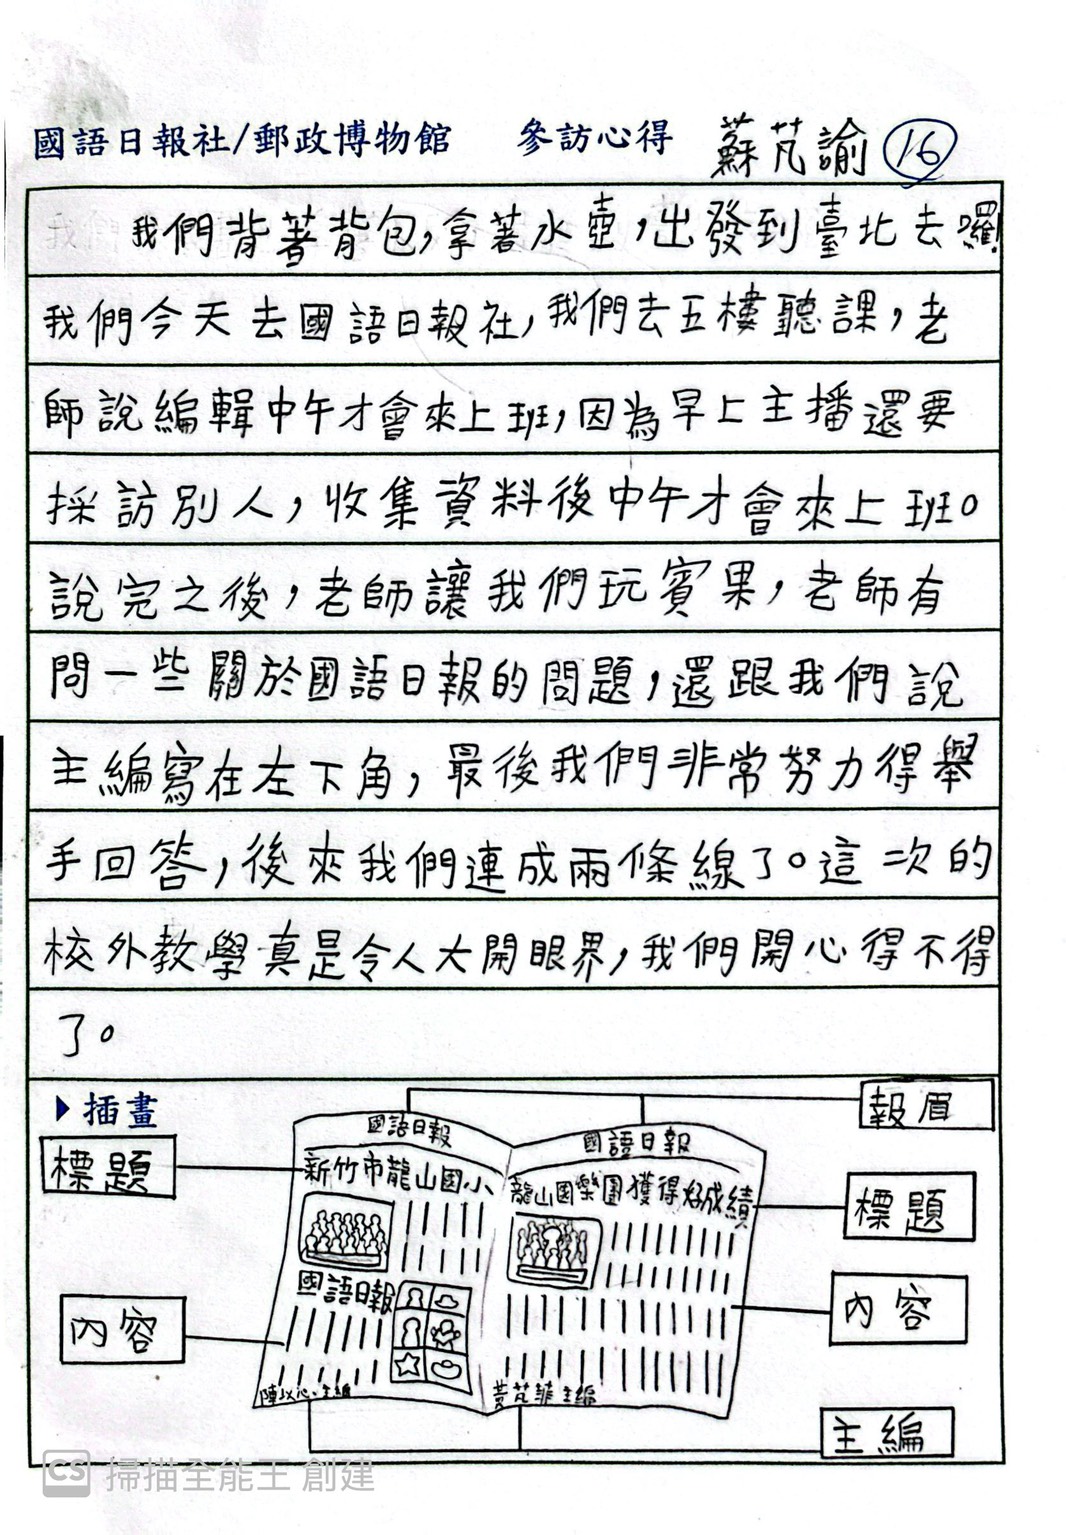 國語日報社/郵政博物館 參訪心得 蘇芃諭 16
我們背著背包,拿著水壺,出發到臺北去囉!
我們今天去國語日報社,我們去五樓聽課,老
師說編輯中午才會來上班,因為早上主播還要
採訪別人,收集資料後中午才會來上班。
說完之後,老師讓我們玩賓果,老師有
問一些關於國語日報的問題,還跟我們說
主編寫在左下角,最後我們非常努力得舉
手回答,後來我們連成兩條線了。這次的
校外教學真是令人大開眼界,我們開心得不得
了。
插畫
報眉
國語日報
國語日報
標題
新竹市龍山國小
龍山國樂團獲得好成績
標題
國語日報
內容
內容
主編
黃芃菲主編
主編
CS 掃描全能王 創建